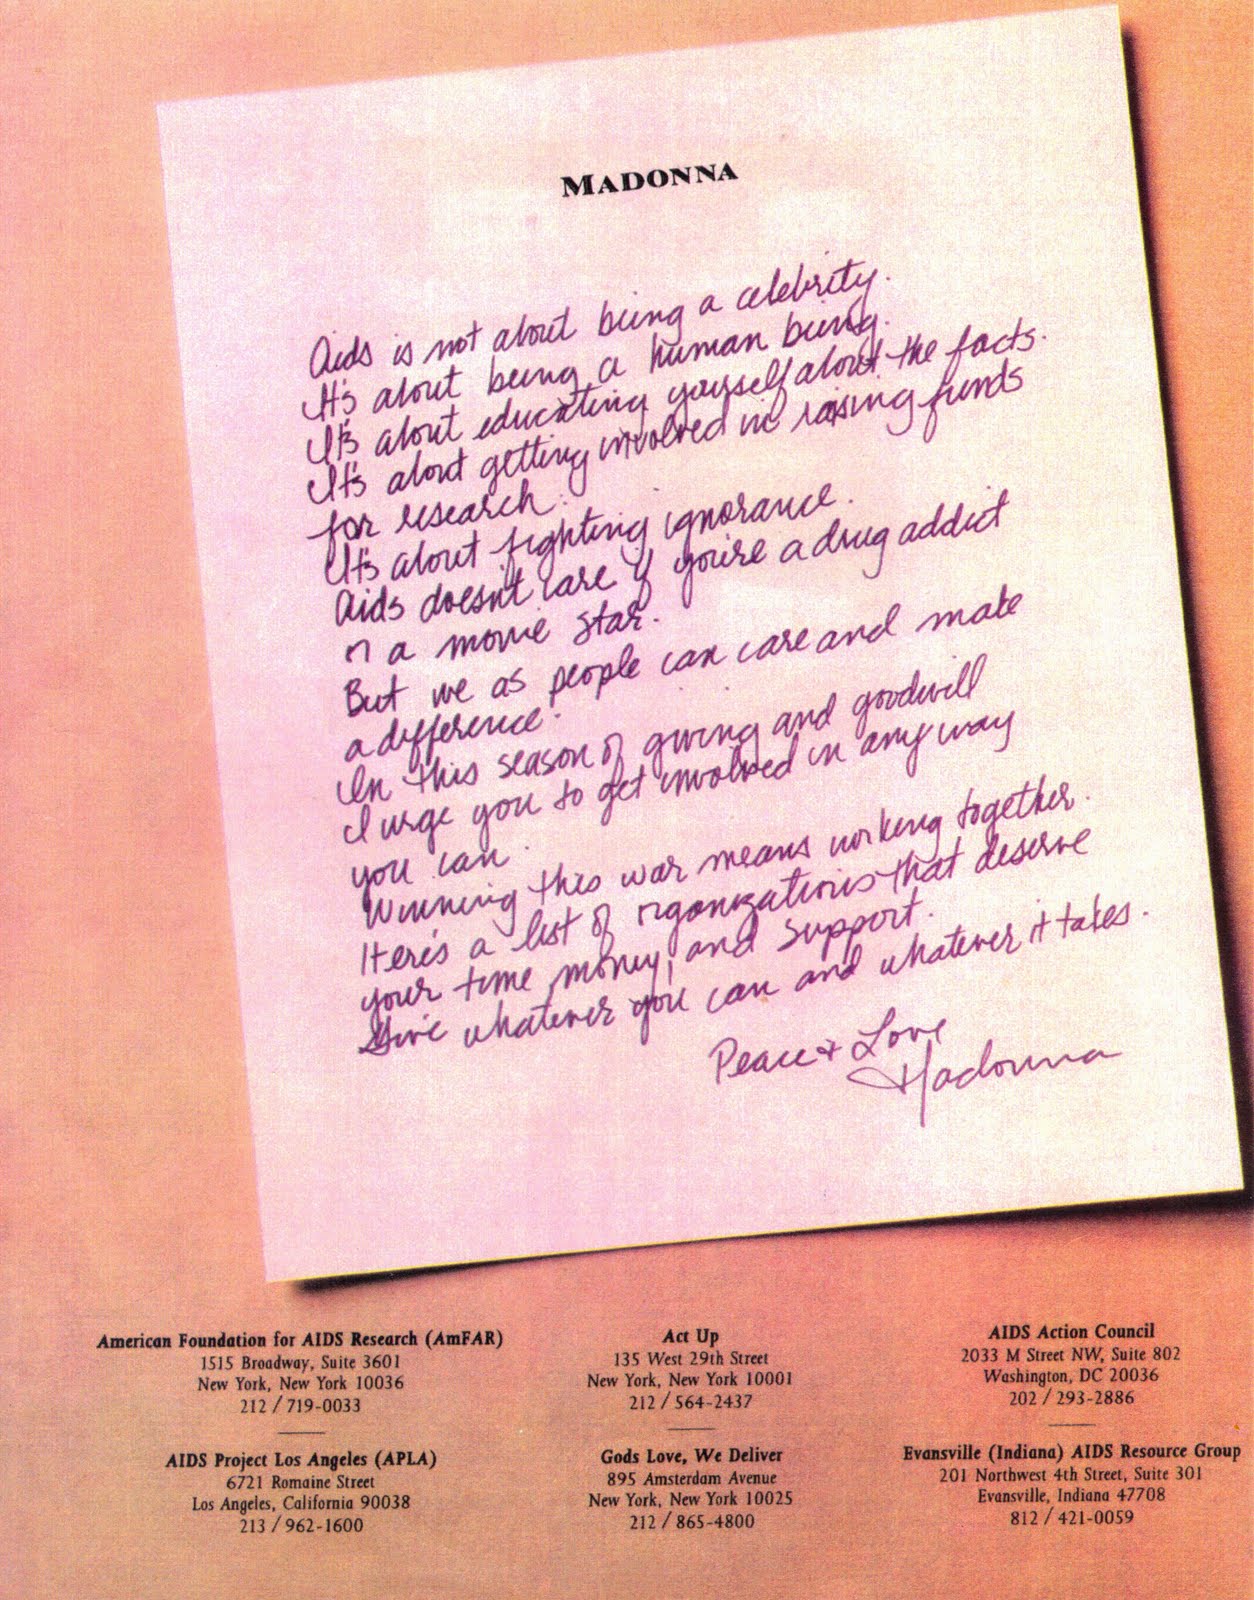 MADONNA
Aids is not about being a celebrity.
It's about being a human being.
It's about educating yourself about the facts.
It's about getting involved in raising funds
for research.
It's about fighting ignorance.
Aids doesn't care if you're a drug addict
or a movie star.
But we as people can care and make
a difference.
In this season of giving and goodwill
I urge you to get involved in any way
you can.
Winning this war means working together.
Here's a list of organizations that deserve
your time, money, and support.
Give whatever you can and whatever it takes.
Peace + Love
Madonna
American Foundation for AIDS Research (AmFAR)
1515 Broadway, Suite 3601
New York, New York 10036
212 / 719-0033
Act Up
135 West 29th Street
New York, New York 10001
212 / 564-2437
AIDS Action Council
2033 M Street NW, Suite 802
Washington, DC 20036
202 / 293-2886
AIDS Project Los Angeles (APLA)
6721 Romaine Street
Los Angeles, California 90038
213 / 962-1600
Gods Love, We Deliver
895 Amsterdam Avenue
New York, New York 10025
212 / 865-4800
Evansville (Indiana) AIDS Resource Group
201 Northwest 4th Street, Suite 301
Evansville, Indiana 47708
812 / 421-0059